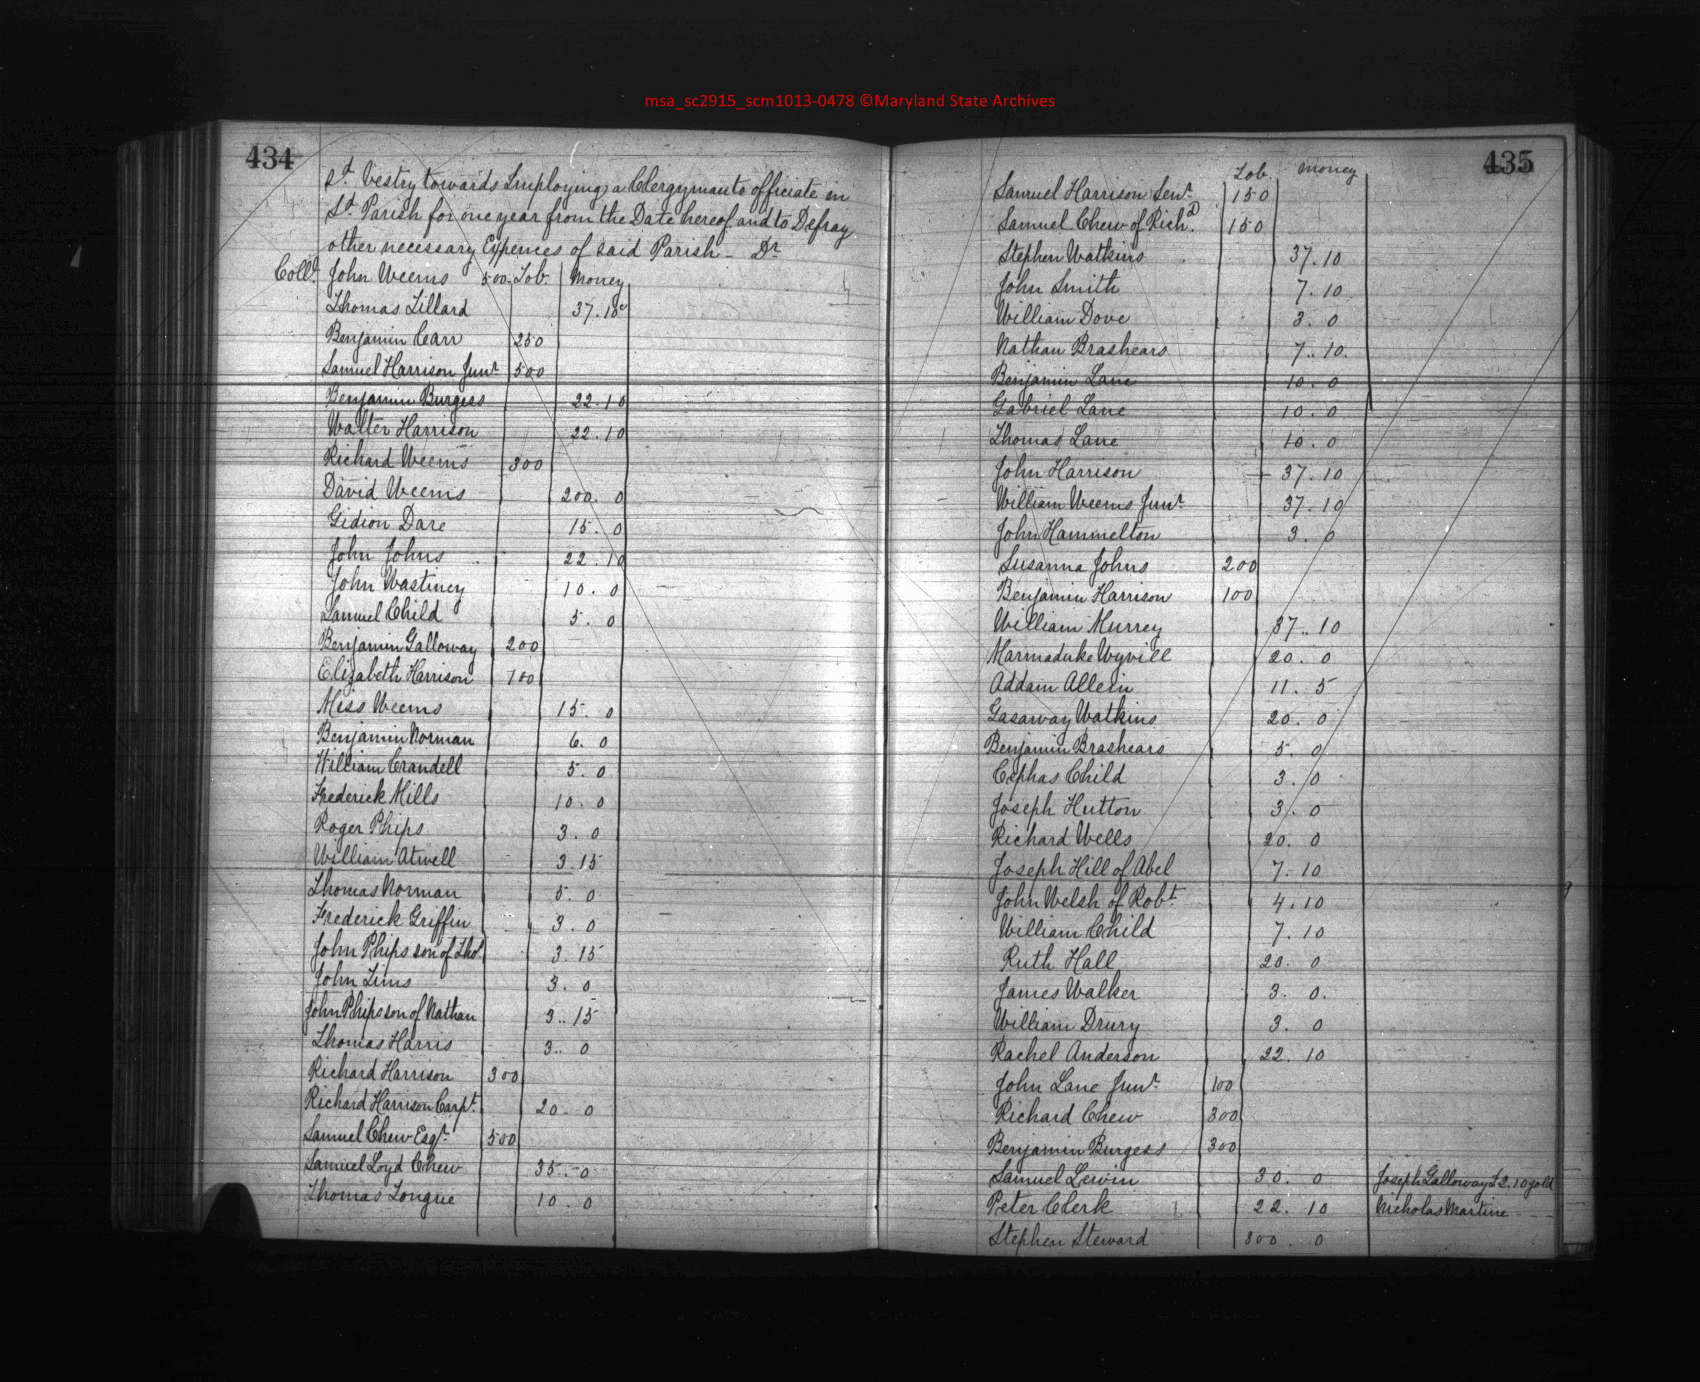 msa_sc2915_scm1013-0478 ©Maryland State Archives
434
sd. Vestry towards Imploying a Clergyman to officiate in
sd. Parish for one year from the Date hereof and to Defray
other necessary Expences of said Parish - Dr
Coll. John Weems 500. Tob. Money
Thomas Tillard 37.10
Benjamin Carr 250
Samuel Harrison Junr. 500
Benjamin Burgess 22.10
Walter Harrison 22.10
Richard Weems 300
David Weems 200. 0
Gidion Dare 15. 0
John Johns 22.10
John Wastiney 10. 0
Samuel Child 5. 0
Benjamin Galloway 200
Elizabeth Harrison 100
Miss Weems 15. 0
Benjamin Norman 6. 0
William Crandell 5. 0
Frederick Mills 10. 0
Roger Phips 3. 0
William Atwell 3.15
Thomas Norman 5. 0
Frederick Griffin 3. 0
John Phips son of Tho. 3.15
John Tims 3. 0
John Phips son of Nathan 3..15
Thomas Harris 3.. 0
Richard Harrison 300
Richard Harrison Carpt. 20. 0
Samuel Chew Esqr. 500
Samuel Loyd Chew 35. 0
Thomas Tongue 10. 0
435
Tob. Money
Samuel Harrison Senr. 150
Samuel Chew of Richd. 150
Stephen Watkins 37.10
John Smith 7.10
William Dove 3. 0
Nathan Brashears 7..10.
Benjamin Lane 10. 0
Gabriel Lane 10. 0
Thomas Lane 10. 0
John Harrison 37.10
William Weems Junr. 37.10
John Hammelton 3. 0
Susanna Johns 200
Benjamin Harrison 100
William Murrey 37..10
Marmaduke Wyvill 20. 0
Addam Allein 11. 5
Gasaway Watkins 20. 0
Benjamin Brashears 5. 0
Cephas Child 3. 0
Joseph Hutton 3. 0
Richard Wells 20. 0
Joseph Hill of Abel 7.10
John Welsh of Robt. 4.10
William Child 7.10
Ruth Hall 20. 0
James Walker 3. 0.
William Drury 3. 0
Rachel Anderson 22. 10
John Lane Junr. 100
Richard Chew 300
Benjamin Burgess 300
Samuel Lewin 30. 0 Joseph Galloway £2.10 gold
Peter Clerk 22. 10 Nicholas Martine
Stephen Steward 800. 0